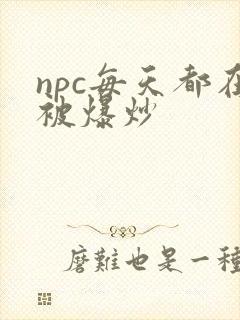 npc每天都在
被爆炒
磨难也是一种